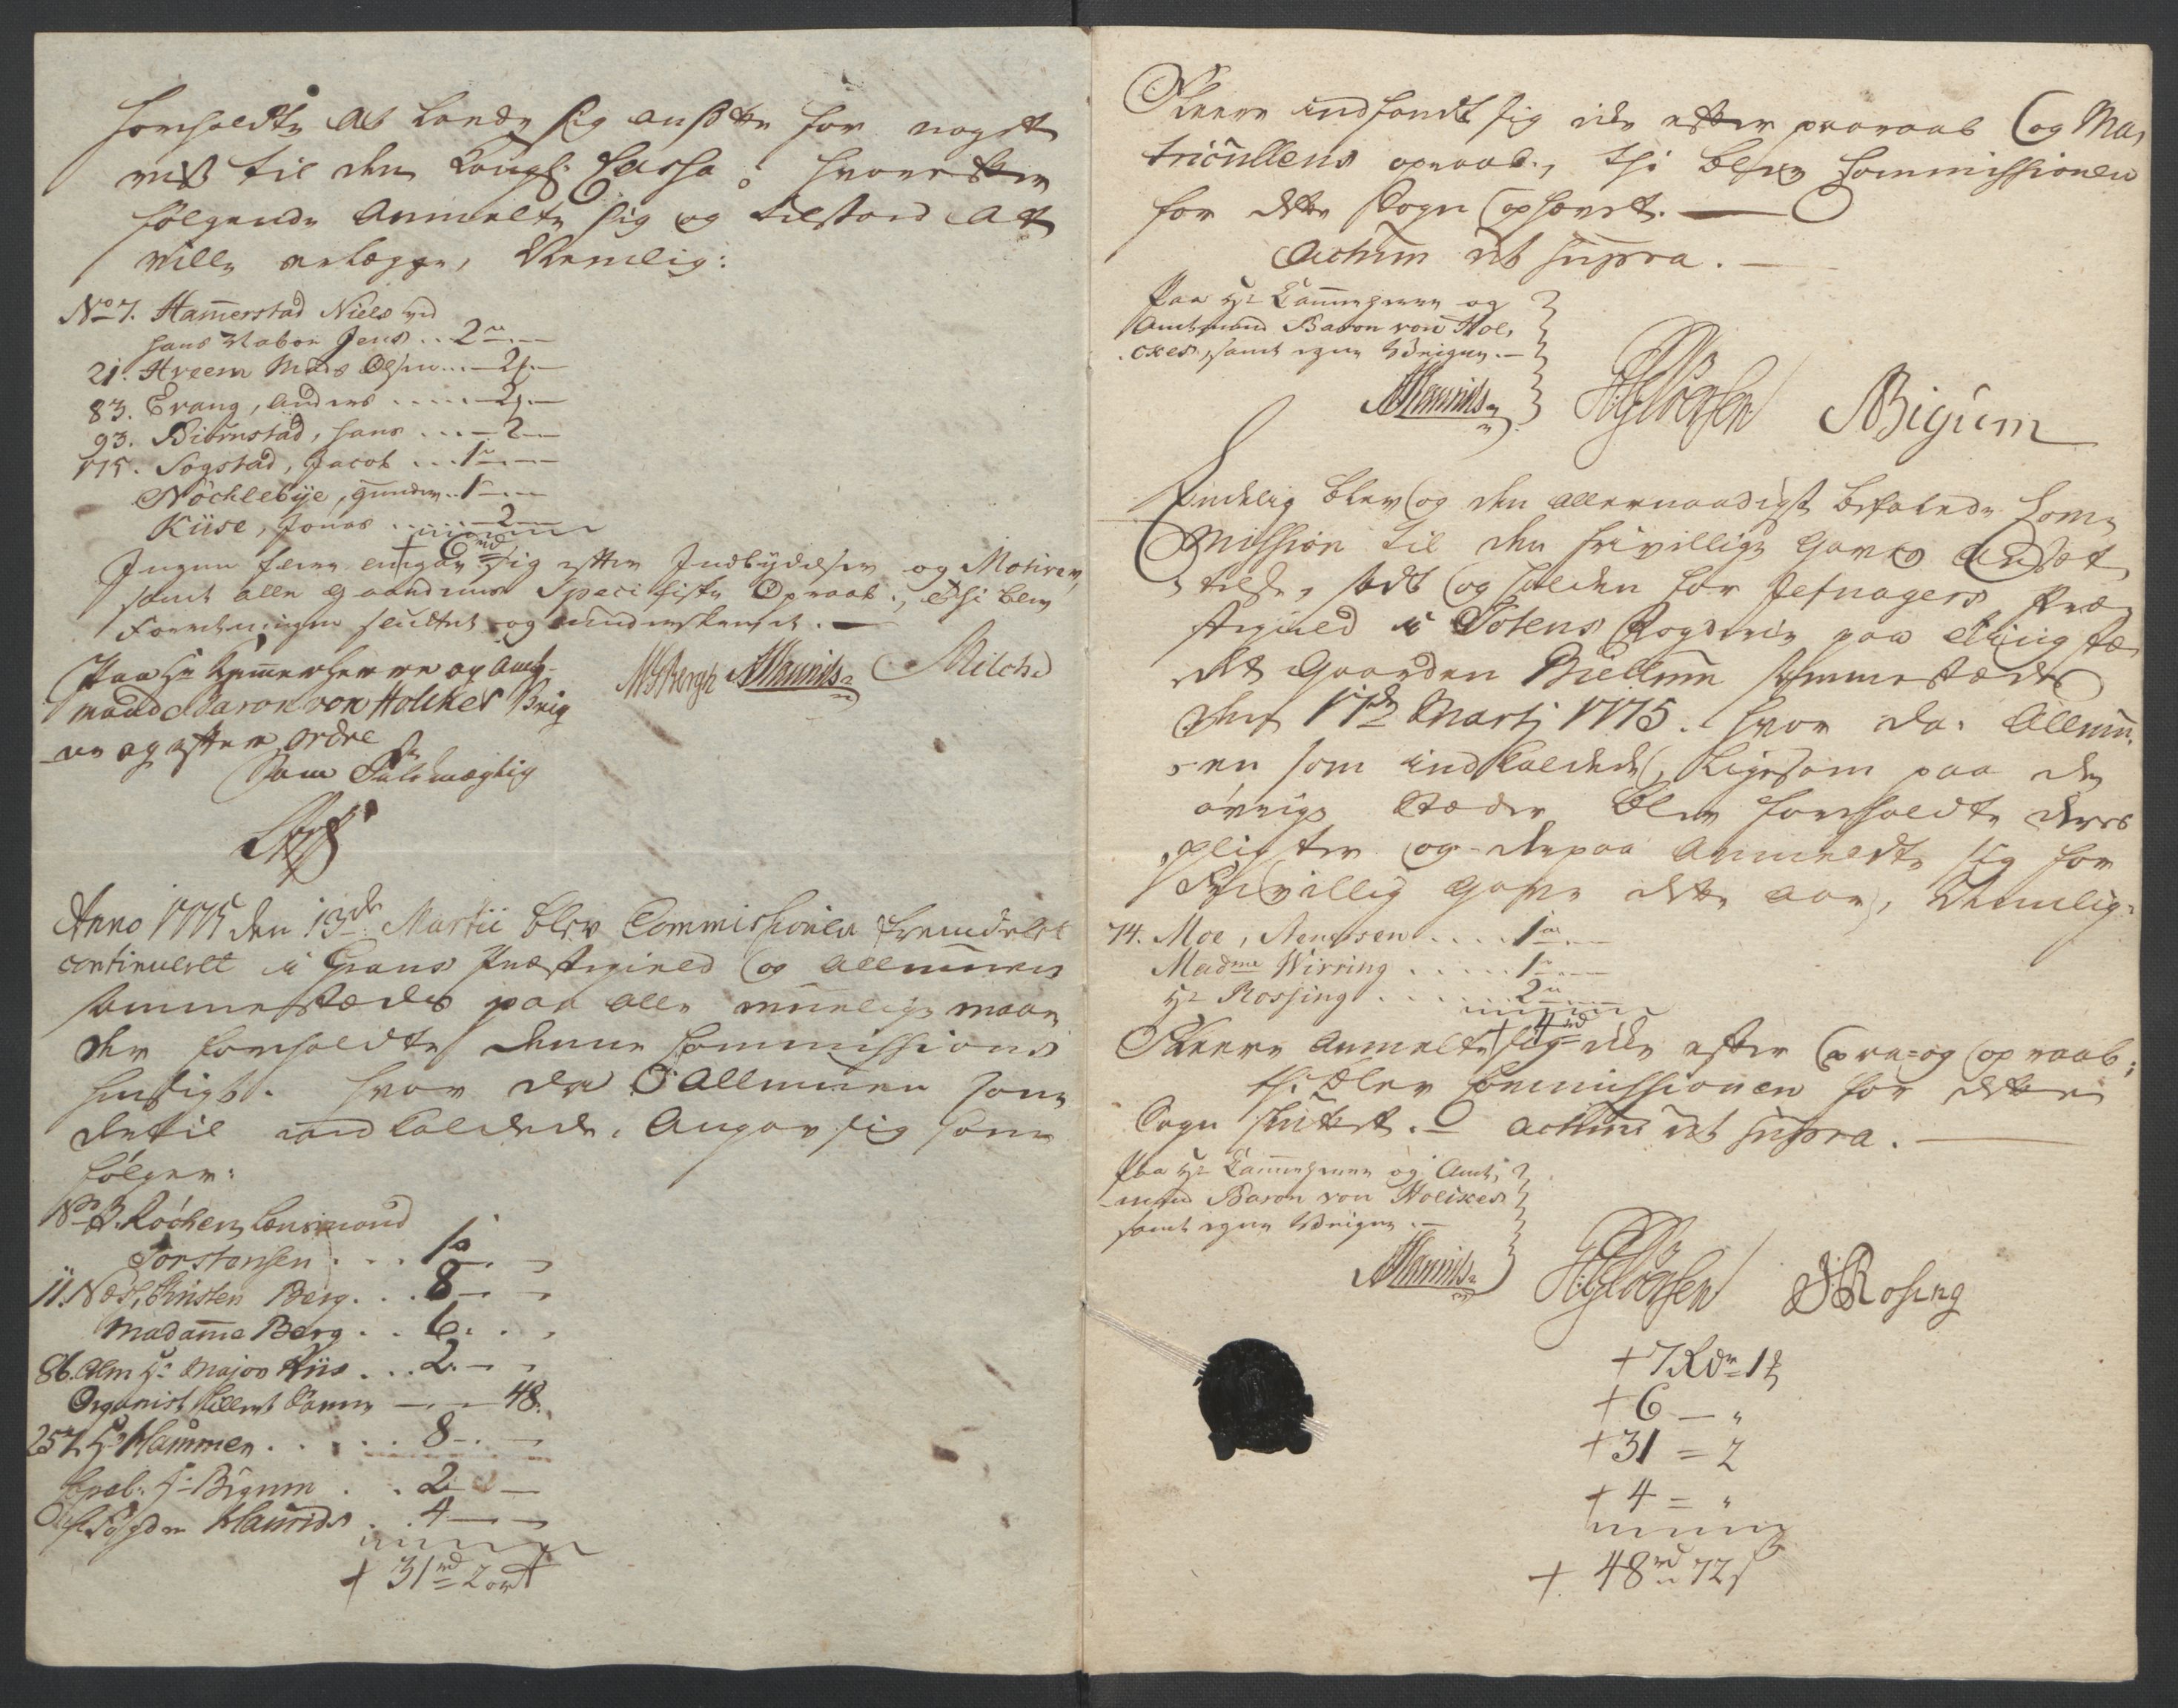 forholdte at lade sig ansætte for noget
vist til den Kongl: Cassa, hvorefter
følgende Anmelte sig og tilstod at
ville erlægge, Nemlig:
No 7. Hammerstad Niels ved
hans Nabor Jens .. 2
21. Hveem Mads Olsen ... 2
83. Evang, Anders ..... 2
93. Biørnstad, Hans .... 2
175. Sogstad, Jacob ... 1
Nöchlebÿe, Gunder .. 1
Kiise, Jonas ..... 2
+ 6 rd
Ingen fleere angav sig efter Indbydelsen og Motiver,
samt alle Gaardenes Specifiste Opraab, thi blev
Forretningen sluttet og underskrevet.
Paa Hr Kammerherre og Amt-
mand Baron von Holckes Veig
ne og efter ordre
som Fuldmægtig
NSBergh Maurids Milche
Anno 1775 den 13de Martii blev Commissionen fremdeles
continueret i Grans Præstegield og Allmuen
sammestæds paa alle muelige maa
der forholdte denne Commissions
hensigt. hvor da Allmuen som
dertil indkaldede, Angav sig som
følger:
No 3. Röchen, Lensmand
Torstensen ... 1
11. Næs, Christen Berg ... 8
Madame Berg .. 6
86. Alm Hr Major Riis ... 2
Organist Schamm — 48.
257. Hr Hammer ..... 8
Capel: Hr Bigum .. 2
Fogden Maurids .. 4
+ 31 rd 2 ort
Fleere indfandt sig ikke efter paaraab og Ma,
triculens opraab, thi blev Commissionen
for dette Sogn ophævet.
Actum ut supra.
Paa Hr Kammerherre og
Amtmand Baron von Hol,
ckes, samt egne Veigne.
Maurids Bigum
Endelig blev og den allernaadigst befalede Com,
mission til den frivillige Gaves Ansæt,
telse, sadt og holden for Jefnagers Præ,
stegield i Totens Fogderie paa Tingstæ,
det Gaarden Biellum sammestæds
den 17de Martj 1775. hvor da Allmu,
en som indkaldede, ligesom paa de
övrige Stæder blev forholdte deres
pligter og derpaa Anmeldte sig for
Frivillig Gave dette Aar, Nemlig:
74. Moe, Arnesen .... 1
Madme Wirring ..... 1
Hr Rossing ..... 2
+ 4 rd
Fleere Anmelte sig ikke efter paa- og opraab;
thi blev Commissionen for dette
Sogn sluttet. Actum ut supra.
Paa Hr Kammerherre og Amt,
mand Baron von Holckes
samt egne Veigne.
Maurids Rosing
+ 7 Rdr 1
+ 6 — "
+ 31 = 2
+ 4 = "
+ 48 rd 72 s